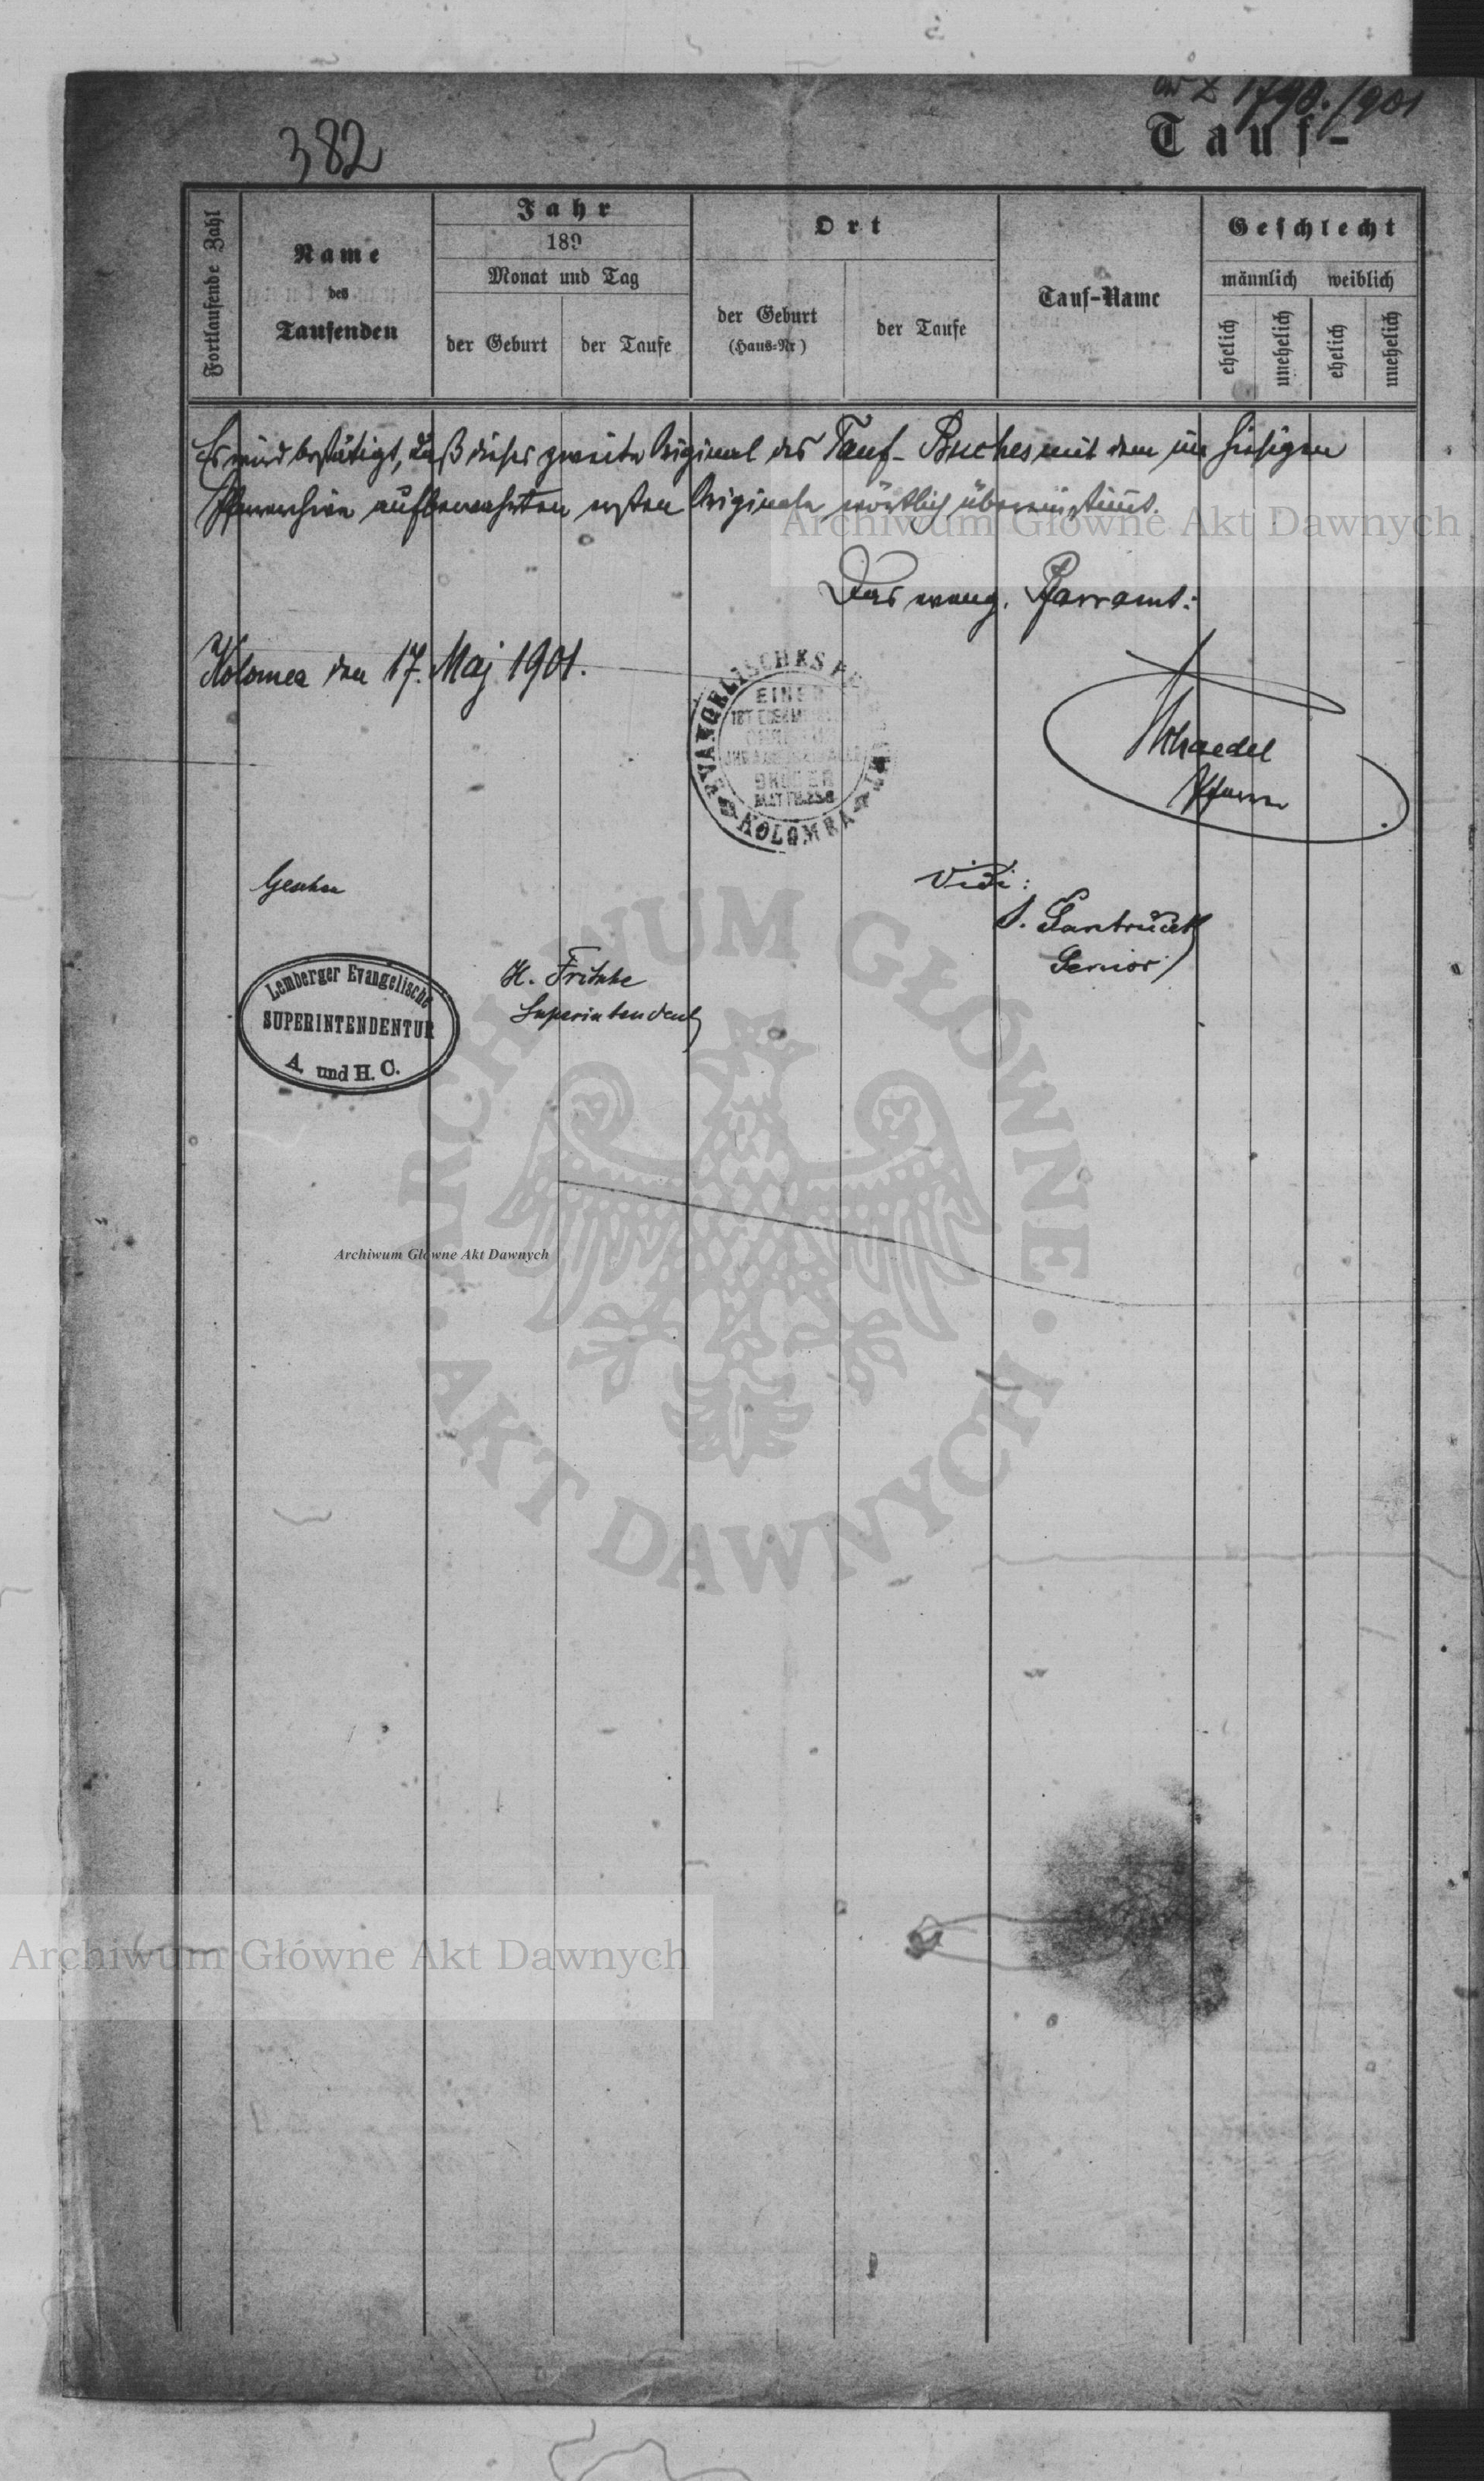 ad Z 1790./901
382
Tauf-
Fortlaufende Zahl
Name
des
Taufenden
Jahr
189
Monat und Tag
der Geburt
der Taufe
Ort
der Geburt
(Haus-Nr)
der Taufe
Tauf-Name
Geschlecht
männlich weiblich
ehelich
unehelich
ehelich
unehelich
Es wird bestätigt, daß dieses zweite Original des Tauf-Buches mit dem im hiesigen
Pfarrarchive aufbewahrten ersten Originale wörtlich übereinstimt.
Archiwum Główne Akt Dawnych
Das evang. Pfarramt:
Kolomea den 17. Maj 1901.
EVANGELISCHES
EINER
IST EUER
BRÜDER
MATTH. 23.8
KOLOMEA
Pfarrer
Gesehen
Vidi:
Senior
Lemberger Evangelische
SUPERINTENDENTUR
A. und H. C.
H. Fritsche
Superintendent
ARCHIWUM GŁÓWNE
AKT DAWNYCH
Archiwum Główne Akt Dawnych
Archiwum Główne Akt Dawnych